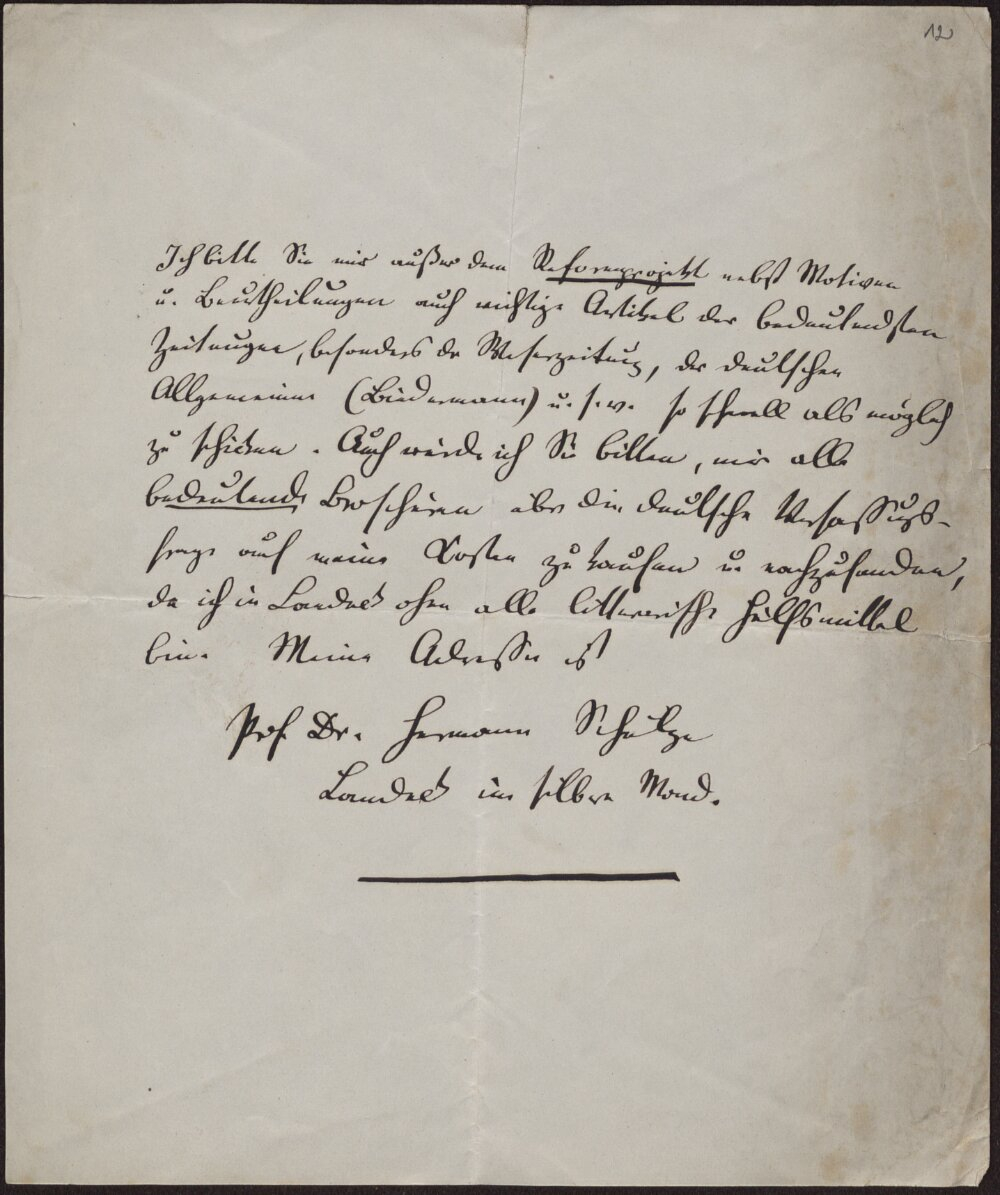 12
Ich bitte Sie mir außer dem Reformprojekt nebst Motiven
u. Beurtheilungen auch wichtige Artikel der bedeutendsten
Zeitungen, besonders der Weserzeitung, der deutschen
Allgemeinen (Biedermann) u. s. w. so schnell als möglich
zu schicken. Auch würde ich Sie bitten, mir alle
bedeutende Broschüren über die deutsche Verfassungs-
frage auf meine Kosten zu kaufen u. nachzusenden,
da ich in Landeck ohne alle litterarische Hülfsmittel
bin. Meine Adresse ist
Prof. Dr. Hermann Schulze
Landeck im silbern Mond.